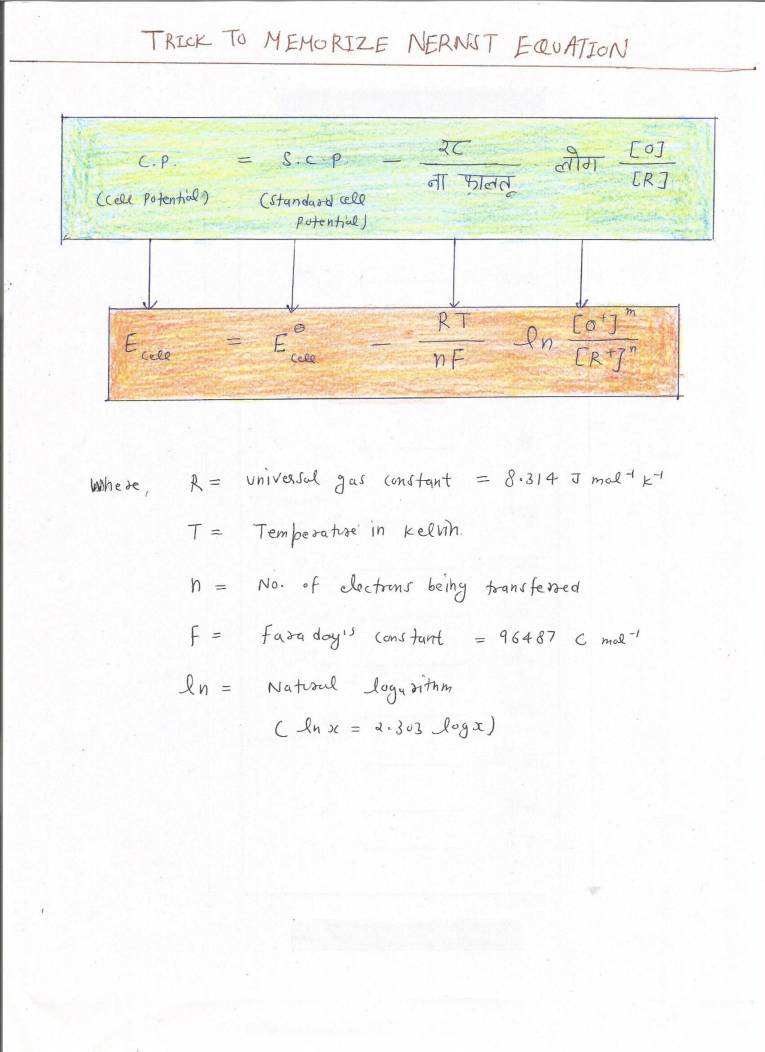 TRICK TO MEMORIZE NERNST EQUATION
C.P. = S.C.P. - रट / ना फ़ालतू लोग [O] / [R]
(Cell Potential) (Standard cell potential)
E cell = E⊖ cell - RT / nF ln [O⁺]ᵐ / [R⁺]ⁿ
Where, R = universal gas constant = 8.314 J mol⁻¹ K⁻¹
T = Temperature in kelvin.
n = No. of electrons being transferred
F = Faraday's constant = 96487 C mol⁻¹
ln = Natural logarithm
( ln x = 2.303 log x)